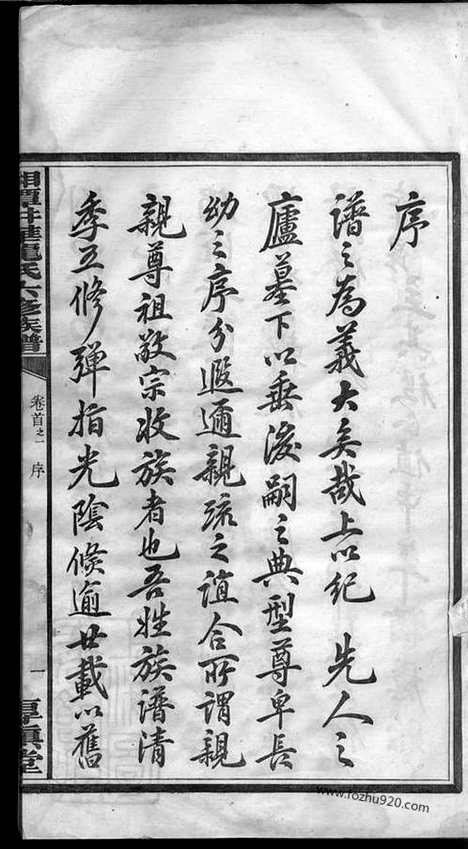 序
譜之為義大矣哉上以紀　先人之
廬墓下以垂後嗣之典型尊卑長
幼之序分遐邇親疏之誼合所謂親
親尊祖敬宗收族者也吾姓族譜清
季五修彈指光陰倏逾廿載以舊
湘潭 氏六修族譜
卷首之一　序
一
厚真堂
www.fozhu920.com